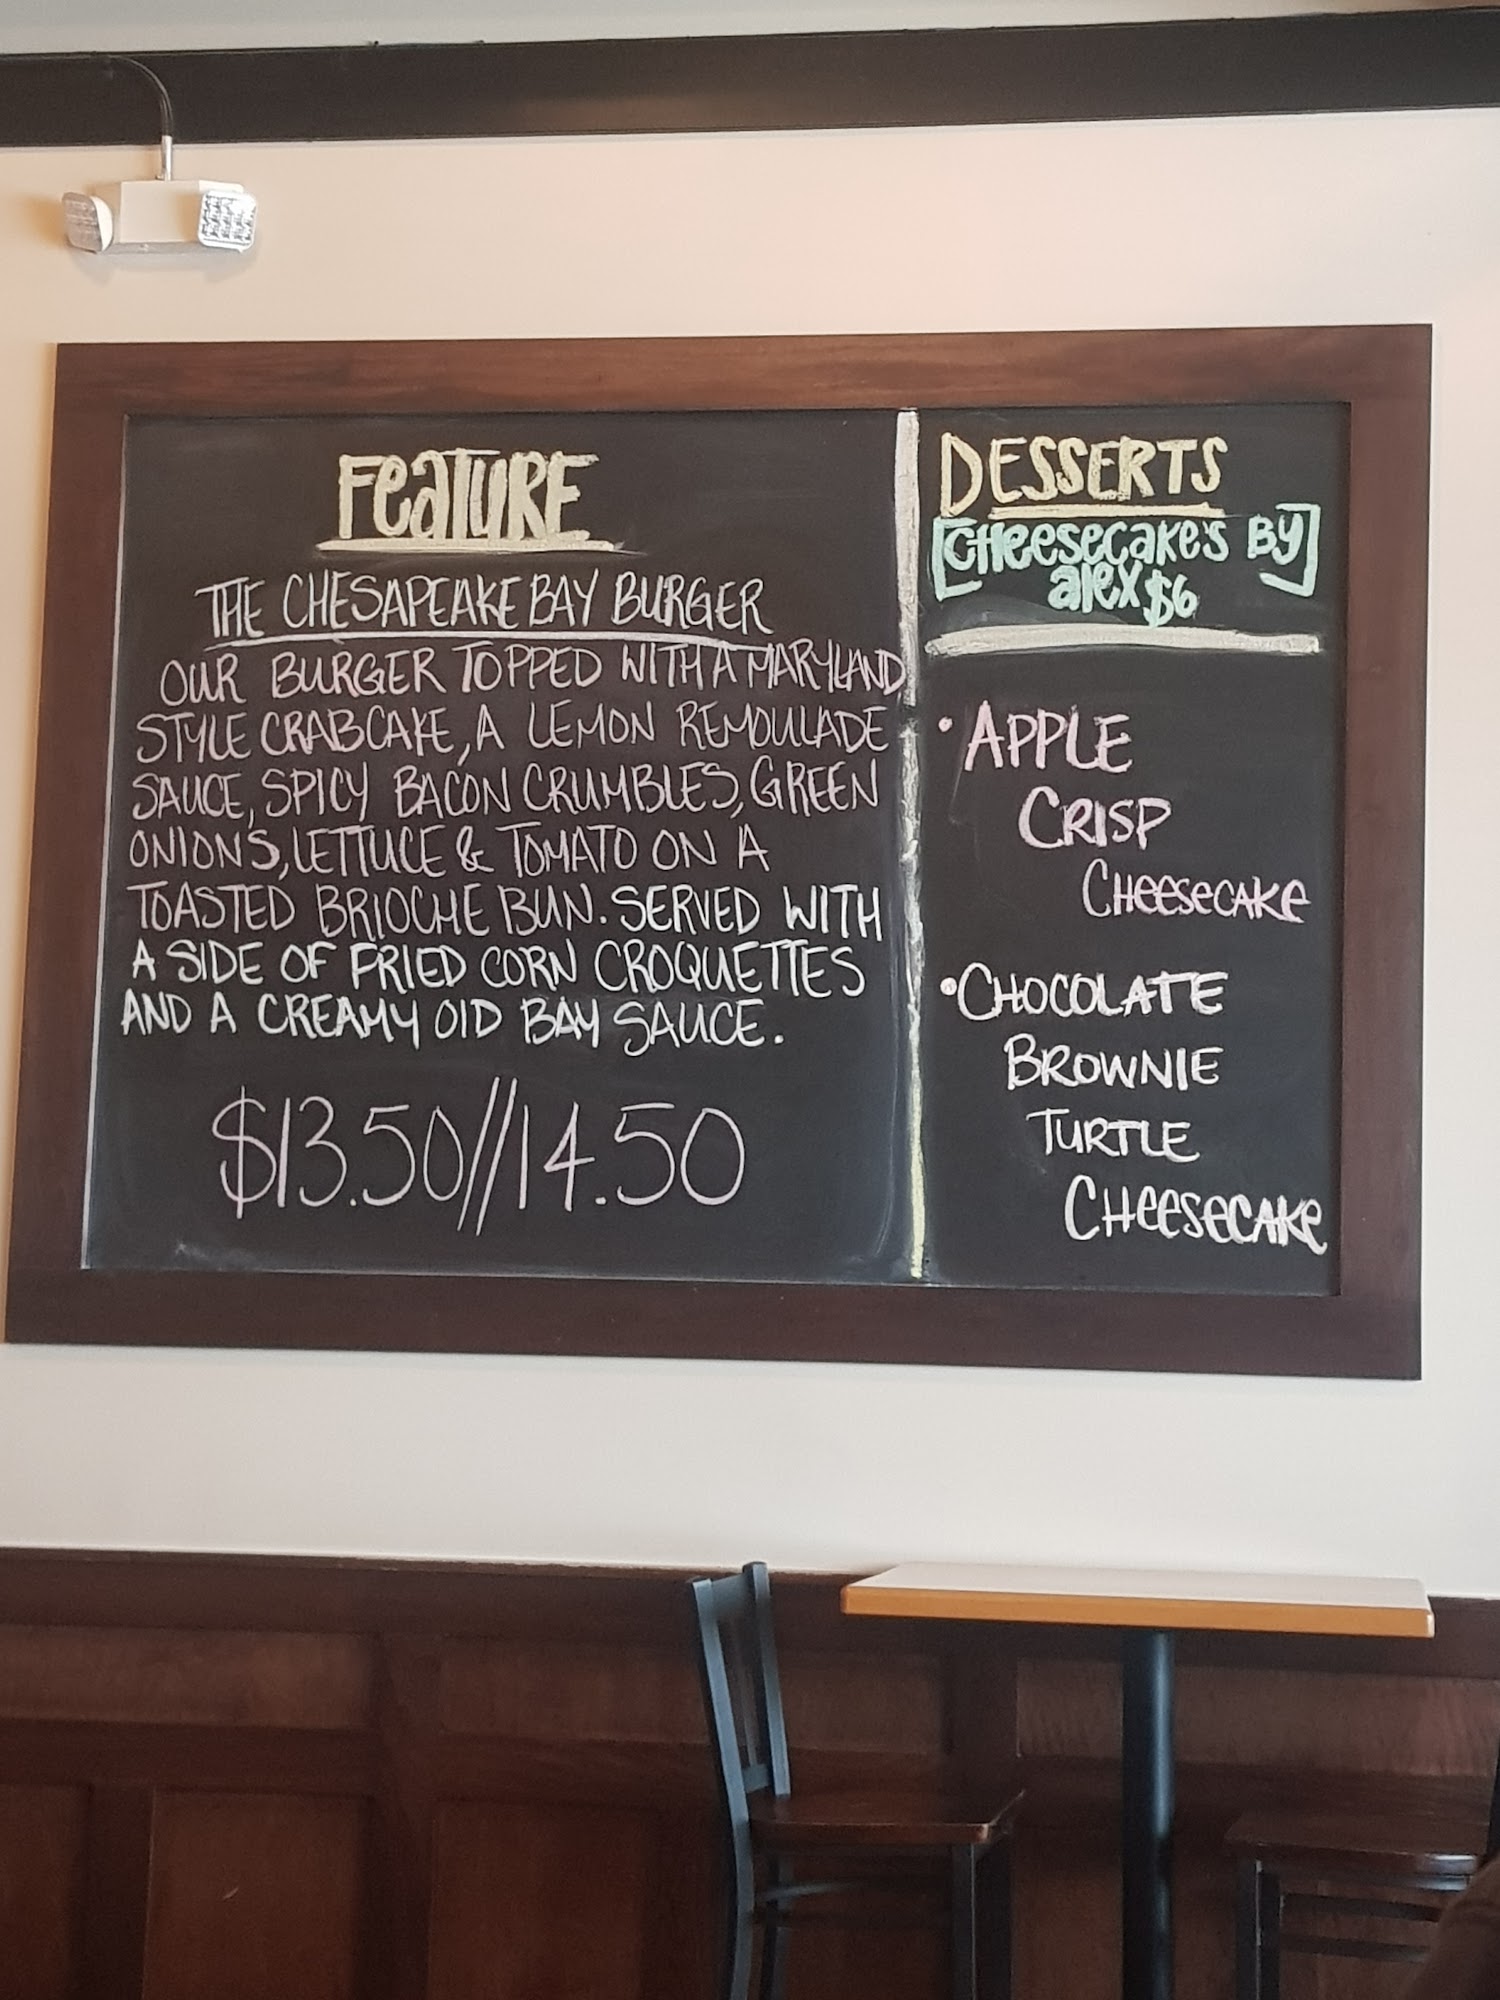 FeaTURE
THE CHESAPEAKE BAY BURGER
OUR BURGER TOPPED WITH A MARYLAND
STYLE CRABCAKE, A LEMON REMOULADE
SAUCE, SPICY BACON CRUMBLES, GREEN
ONIONS, LETTUCE & TOMATO ON A
TOASTED BRIOCHE BUN. SERVED WITH
A SIDE OF FRIED CORN CROQUETTES
AND A CREAMY OlD BAY SAUCE.
$13.50//14.50
DESSERTS
[CHeesecake's BY
alex $6]
•APPLE
CRISP
CHeeseCAKe
•CHOCOLATE
BROWNIE
TURTLE
CHeeseCAKe